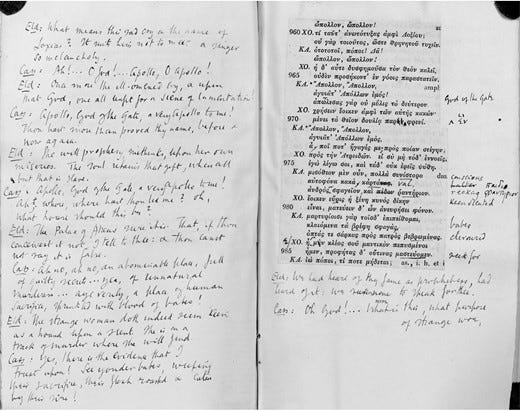 Eld: What means this sad cry on the name of
Loxias? It suits him not to meet a singer
so melancholy.
Cass: Ah! ... O God! ... Apollo, O Apollo!
Eld: Once more the ill-omened cry, & upon
that God, one all unfit for a scene of lamentation!
Cass: Apollo, God of the Gate, a very Apollo to me!
Thou hast more than proved thy name, before &
now again.
Eld: She will prophesy methinks, upon her own
miseries. The soul retains that gift, when all
but that is slave.
Cass: Apollo, God of the Gate, a very Apollo to me!
Ah?, where, where hast thou led me? oh,
what house should this be?
Eld: The Palace of Atreus sure this. That, if thou
conceivest it not, I tell to thee: & thou canst
not say it is false.
Cass: Ah no, ah no, an abominable place, full
of guilty secrets ... yea, of unnatural
murders ... aye verily, a place of human
sacrifice, sprinkled with blood of babes!
Eld: The strange woman doth indeed seem keen
as a hound upon a scent. She is on a
track of murder where she will find
Cass: Yes, there is the evidence that I
trust upon! See yonder babes, weeping
their sacrifice, their flesh roasted & eaten
by their sire!
ὤπολλον, ὤπολλον!
960 ΧΟ. τί ταῦτ' ἀνωτότυξας ἀμφὶ Λοξίου;
οὐ γὰρ τοιοῦτος, ὥστε θρηνητοῦ τυχεῖν.
ΚΑ. ὀτοτοτοῖ, πόποι! Δᾶ!
ὤπολλον, ὤπολλον!
ΧΟ. ἡ δ' αὖτε δυσφημοῦσα τὸν θεὸν καλεῖ,
965 οὐδὲν προσήκοντ' ἐν γόοις παραστατεῖν.
ΚΑ. Ἄπολλον, Ἄπολλον,
ἀγυιᾶτ' Ἀπόλλων ἐμός!
God of the Gate
ἀπώλεσας γὰρ οὐ μόλις τὸ δεύτερον
ΧΟ. χρήσειν ἔοικεν ἀμφὶ τῶν αὑτῆς κακῶν·
970 μένει τὸ θεῖον δουλίᾳ φρενί.
ΚΑ. Ἄπολλον, Ἄπολλον,
ἀγυιᾶτ' Ἀπόλλων ἐμός,
ἆ, ποῖ ποτ' ἤγαγές με; πρὸς ποίαν στέγην;
ΧΟ. πρὸς τὴν Ἀτρειδῶν. εἰ σὺ μὴ τόδ' ἐννοεῖς,
975 ἐγὼ λέγω σοι, καὶ τάδ' οὐκ ἐρεῖς ψύθη.
ΚΑ. μισόθεον μὲν οὖν, πολλὰ συνίστορα
αὐτοφόνα κακὰ, καρτάναι
ἀνδρὸς σφαγεῖον καὶ πέδον ῥαντήριον.
ΧΟ. ἔοικεν εὔρις ἡ ξένη κυνὸς δίκην
980 εἶναι, ματεύειν δ' ὧν ἀνευρήσει φόνον.
ΚΑ. μαρτυρίοισι γὰρ τοῖσδ' ἐπιπείθομαι,
κλαιόμενα τὰ βρέφη σφαγάς,
babes
ὀπτάς τε σάρκας πρὸς πατρὸς βεβρωμένας.
devoured
ΧΟ. ἦ μὴν κλέος σοῦ μαντικὸν πεπυσμένοι
985 ἦμεν, προφήτας δ' οὔτινας μαστεύομεν.
seek for
ΚΑ. ἰὼ πόποι, τί ποτε μήδεται;
Eld: We had heard of thy fame as prophetess, had
heard of it: we none to speak for thee.
Cass: Oh God! ... What is this, what purpose
of strange woe,